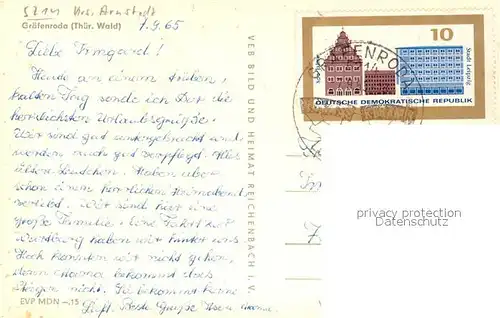 Krs. Arnstadt
Gräfenroda (Thür. Wald)
7.9.65
Liebe Irmgard!
Heute an einem trüben,
kalten Tag sende ich Dir die
herzlichsten Urlaubsgrüße.
Wir sind gut untergebracht und
werden auch gut verpflegt. Alles
ältere Leutchen. Haben aber
schon einen herrlichen Heimatabend
verlebt. Wir sind hier eine
große Familie. Eine Fahrt zur
Wartburg haben wir hinter uns.
Hoch konnten wir nicht gehen,
denn Mama bekommt das
Steigen nicht. Sie bekommt keine
Luft. Beste Grüße
EVP MDN –.15
VEB BILD UND HEIMAT REICHENBACH I. V.
10
Stadt Leipzig
DEUTSCHE DEMOKRATISCHE REPUBLIK
GRÄFENRODA
privacy protection
Datenschutz